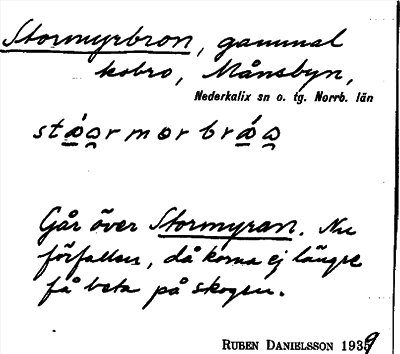 Stormyrbron, gammal
kobro, Månsbyn,
Nederkalix sn o. tg. Norrb. län
Går över Stormyran. Nu
förfallen, då korna ej längre
få beta på skogen.
RUBEN DANIELSSON 1939